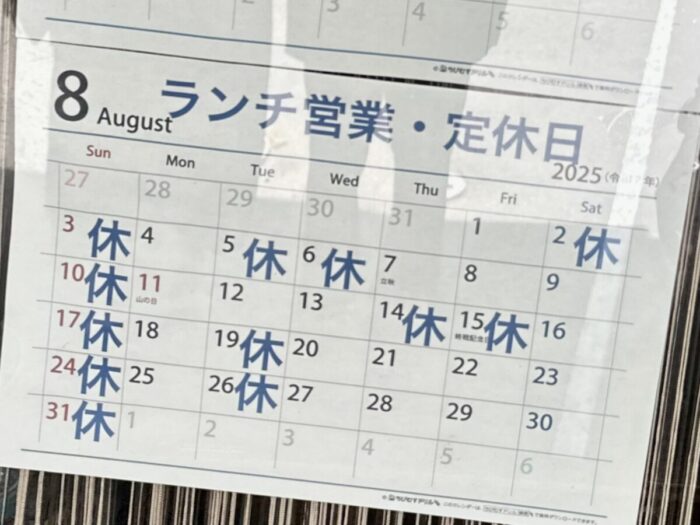 3 4 5 6
8 August ランチ営業・定休日
2025
Sun Mon Tue Wed Thu Fri Sat
27 28 29 30 31 1 2 休
3 休 4 5 休 6 休 7 8 9
立秋
10 休 11 12 13 14 休 15 休 16
山の日 終戦記念日
17 休 18 19 休 20 21 22 23
24 休 25 26 休 27 28 29 30
31 休 1 2 3 4 5 6